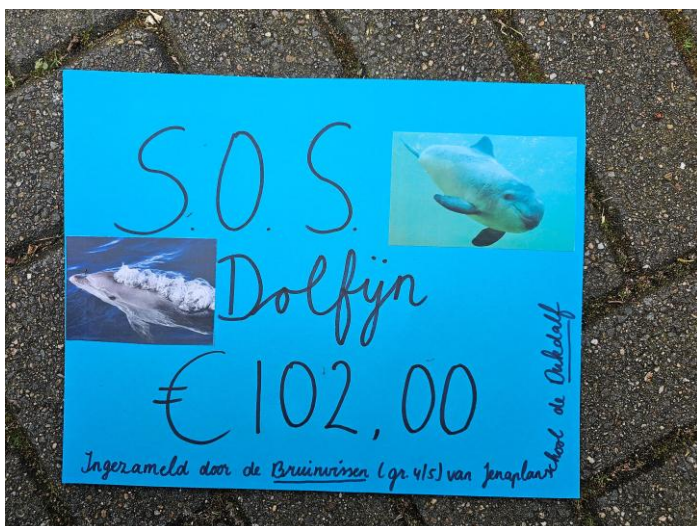 S.O.S.
Dolfijn
€102,00
Ingezameld door de Bruinvissen (gr 4/5) van Jenaplanschool de Ankdalf